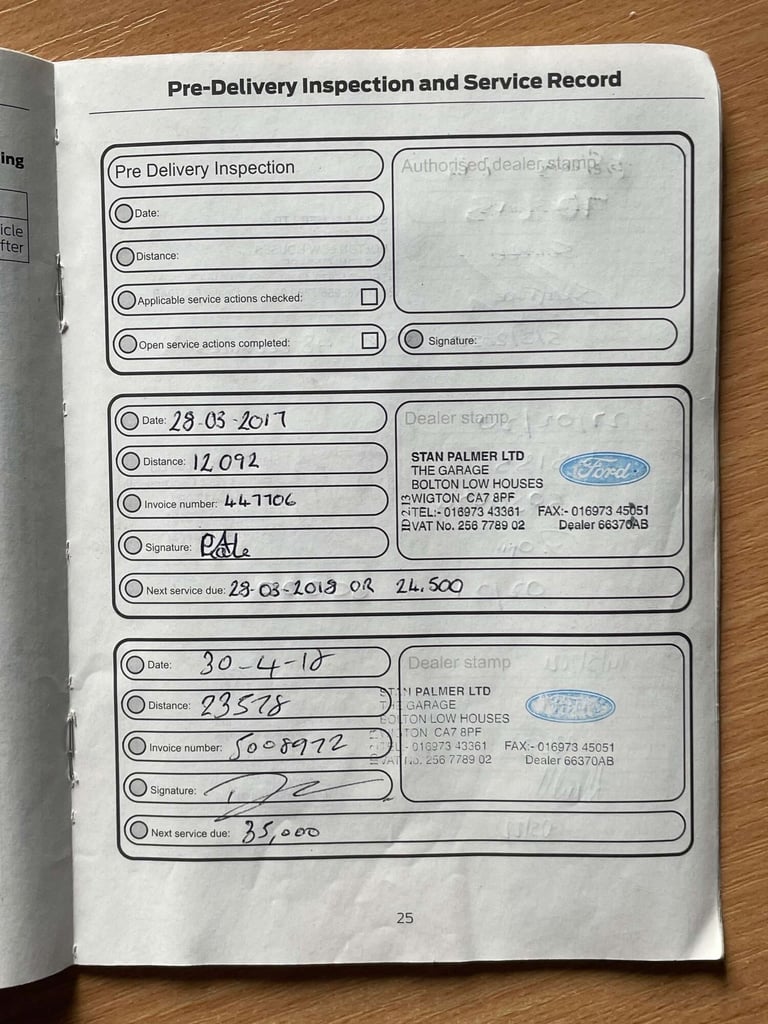 ing
icle
fter
Pre-Delivery Inspection and Service Record
Pre Delivery Inspection
Authorised dealer stamp
Date:
Distance:
Applicable service actions checked:
Open service actions completed:
Signature:
Date: 28-03-2017
Dealer stamp
Distance: 12092
STAN PALMER LTD
THE GARAGE
BOLTON LOW HOUSES
WIGTON CA7 8PF
TEL:- 016973 43361 FAX:- 016973 45051
VAT No. 256 7789 02 Dealer 66370AB
Ford
Invoice number: 447706
Signature:
Next service due: 28-03-2018 OR 24.500
Date: 30-4-18
Dealer stamp
Distance: 23578
STAN PALMER LTD
THE GARAGE
BOLTON LOW HOUSES
WIGTON CA7 8PF
TEL:- 016973 43361 FAX:- 016973 45051
VAT No. 256 7789 02 Dealer 66370AB
Ford
Invoice number: 5008972
Signature:
Next service due: 35,000
25